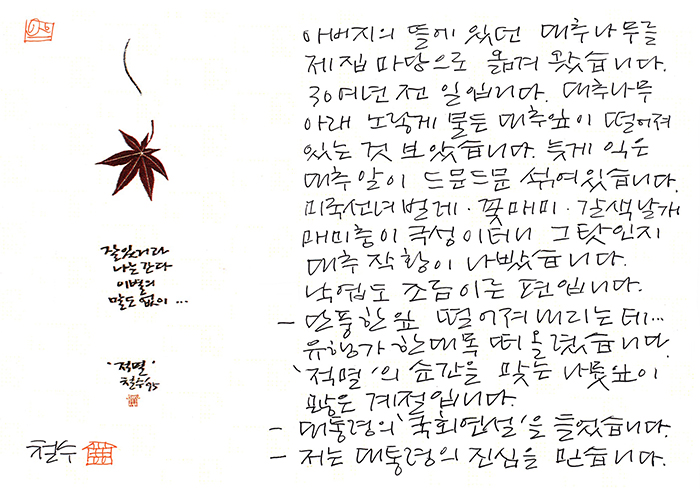 잘있거라
나는간다
이별의
말도 없이 ...
'적멸'
철수 95
철수
아버지의 뜰에 있던 대추나무를
제 집 마당으로 옮겨 왔습니다.
30여년 전 일입니다. 대추나무
아래 노랗게 물든 대추잎이 떨어져
있는 것 보았습니다. 늦게 익은
대추 알이 드문드문 섞여있습니다.
미국선녀벌레 · 꽃매미 · 갈색날개
매미충이 극성이더니 그 탓인지
대추 작황이 나빴습니다.
낙엽도 조금 이른 편입니다.
- 단풍한잎 떨어져내리는데...
유행가 한대목 떠올렸습니다.
'적멸'의 순간을 맞는 나뭇잎이
많은 계절입니다.
- 대통령의 '국회연설'을 들었습니다.
- 저는 대통령의 진심을 믿습니다.